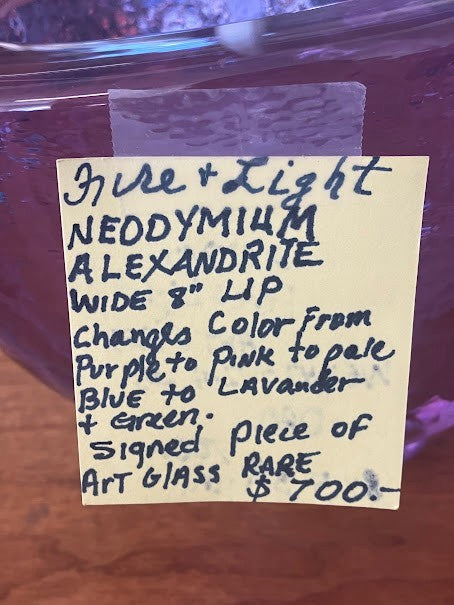 Fire + Light
NEODYMIUM
ALEXANDRITE
WIDE 8" LIP
Changes Color From
Purple to PINK to pale
BLUE to LAVander
+ Green.
Signed piece of
ART GlASS RARE
$700.-